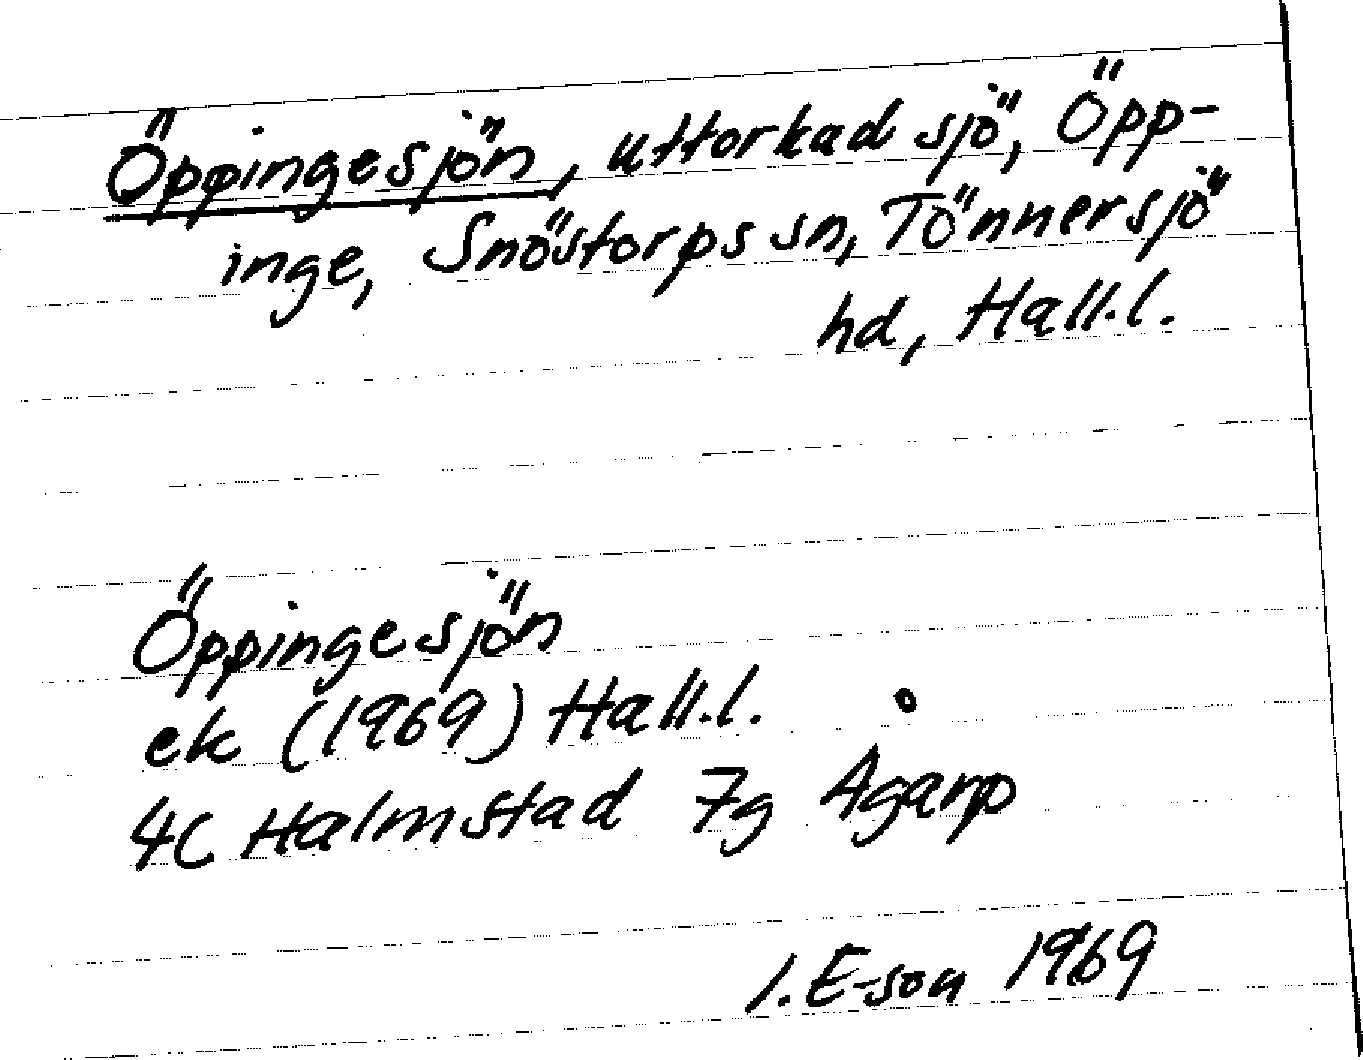 Öppingesjön, uttorkad sjö, Öpp-
inge, Snöstorps sn, Tönnersjö
hd, Hall.l.
Öppingesjön
ek (1969) Hall.l.
4C Halmstad 7g Ågarp
I. E-son 1969